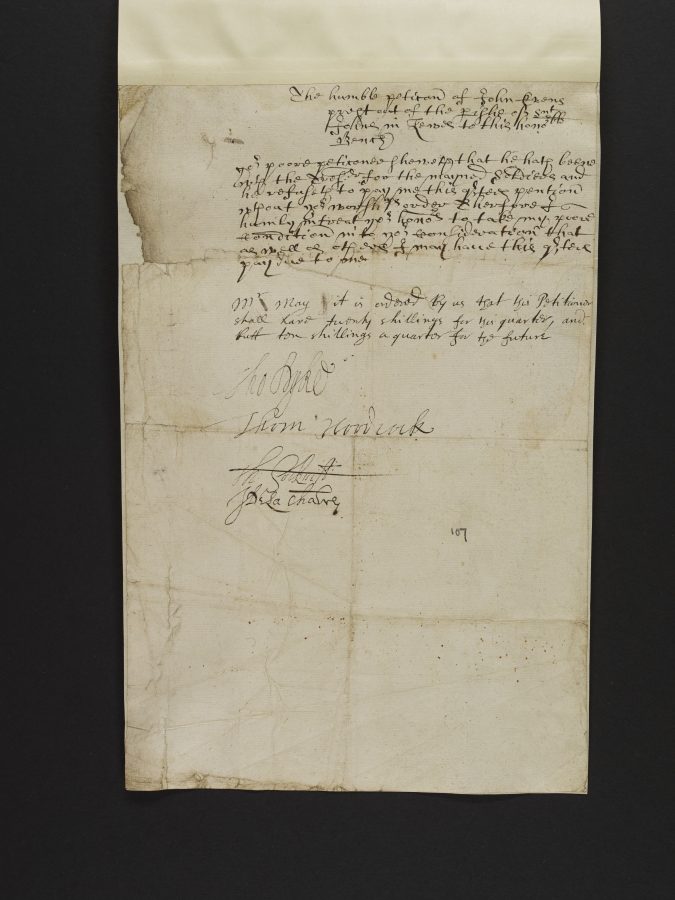 The humble peticon of John
out of the of
Johns in Lewes to this hono
Bench
yor poore peticoner sheweth that he hath beene
with the for the maymed Soldiers and
he refuseth to pay me this qrters pention
wthout yor worshps order Therfore I
humly intreat yor honors to take my poore
condition into yor consideration that
as well as others I may have this qrters
pay due to me
Mr May it is ordered by us that the Petitioner
shall have twenty shillings for this quarter, and
butt ten shillings a quarter for the future
Tho
Thom Woodcock
De La Chambre
107